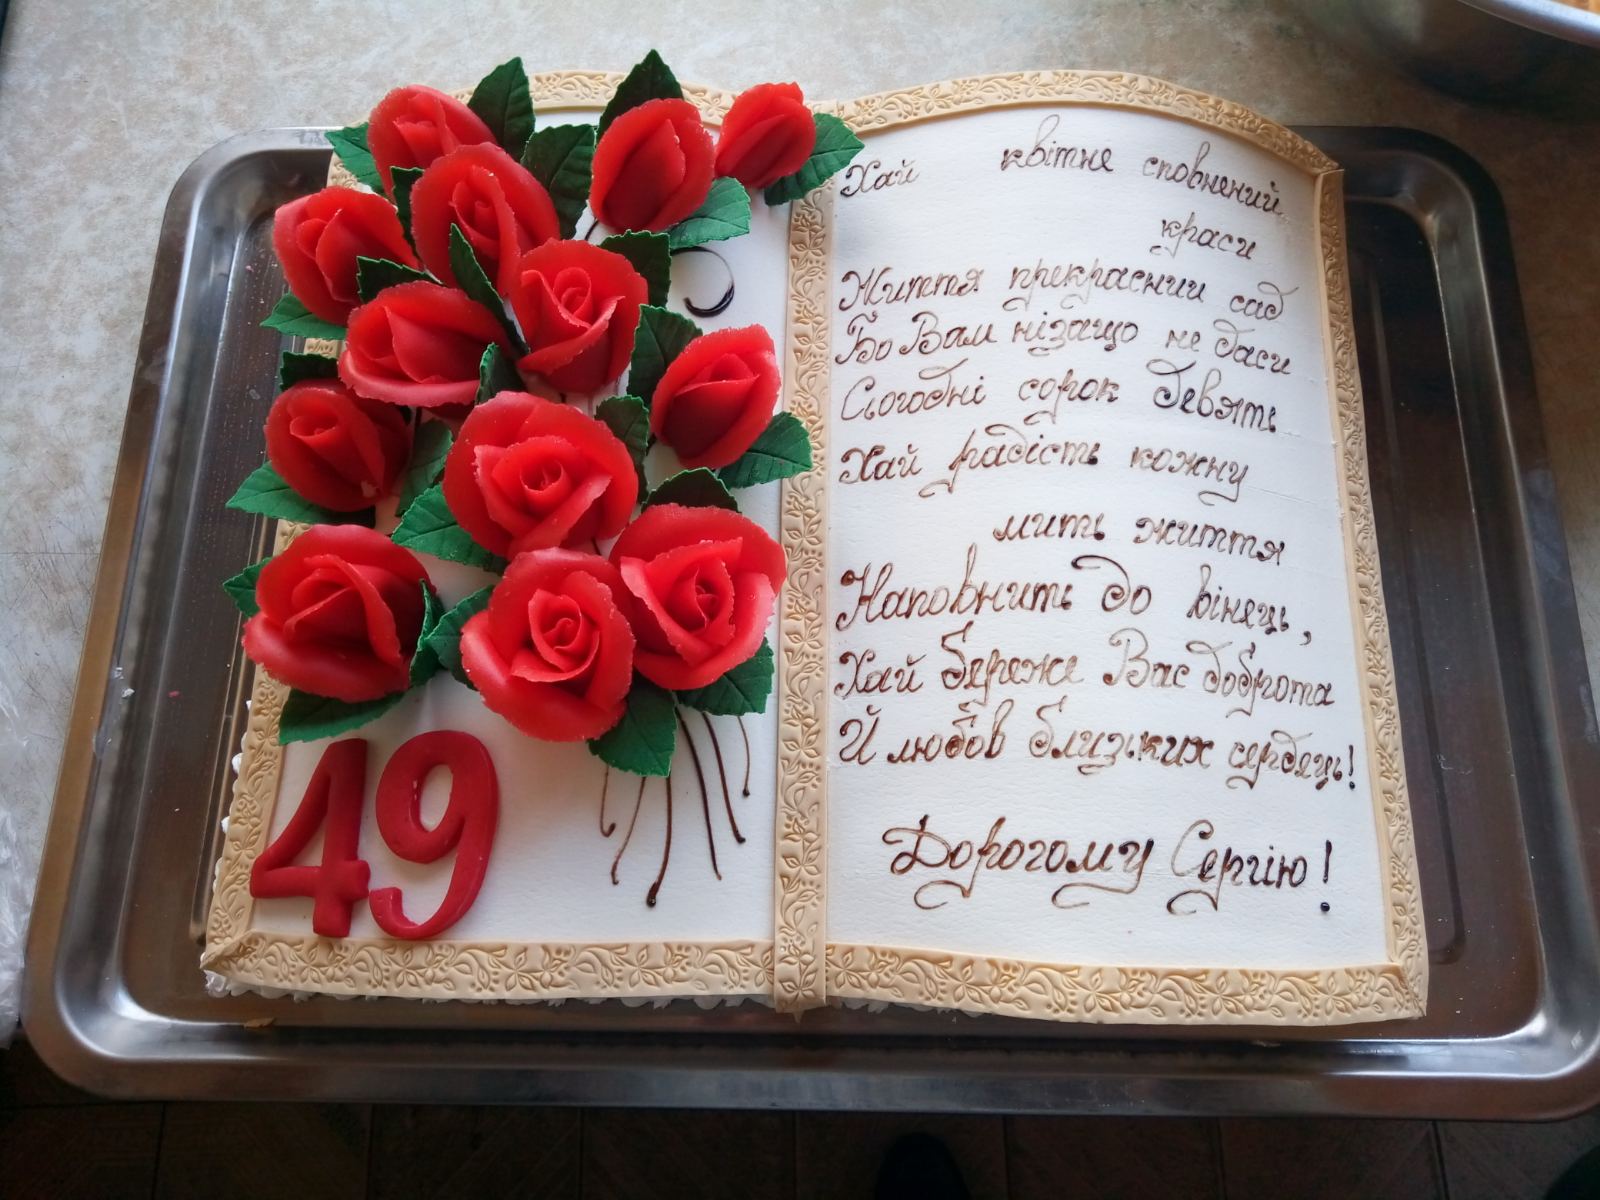 Хай квітне сповнений
краси
Життя прекрасний сад
Бо Вам нізащо не даси
Сьогодні сорок девять
Хай радість кожну
мить життя
Наповнить до вінець,
Хай береже Вас доброта
Й любов близьких сердець!
Дорогому Сергію!
49